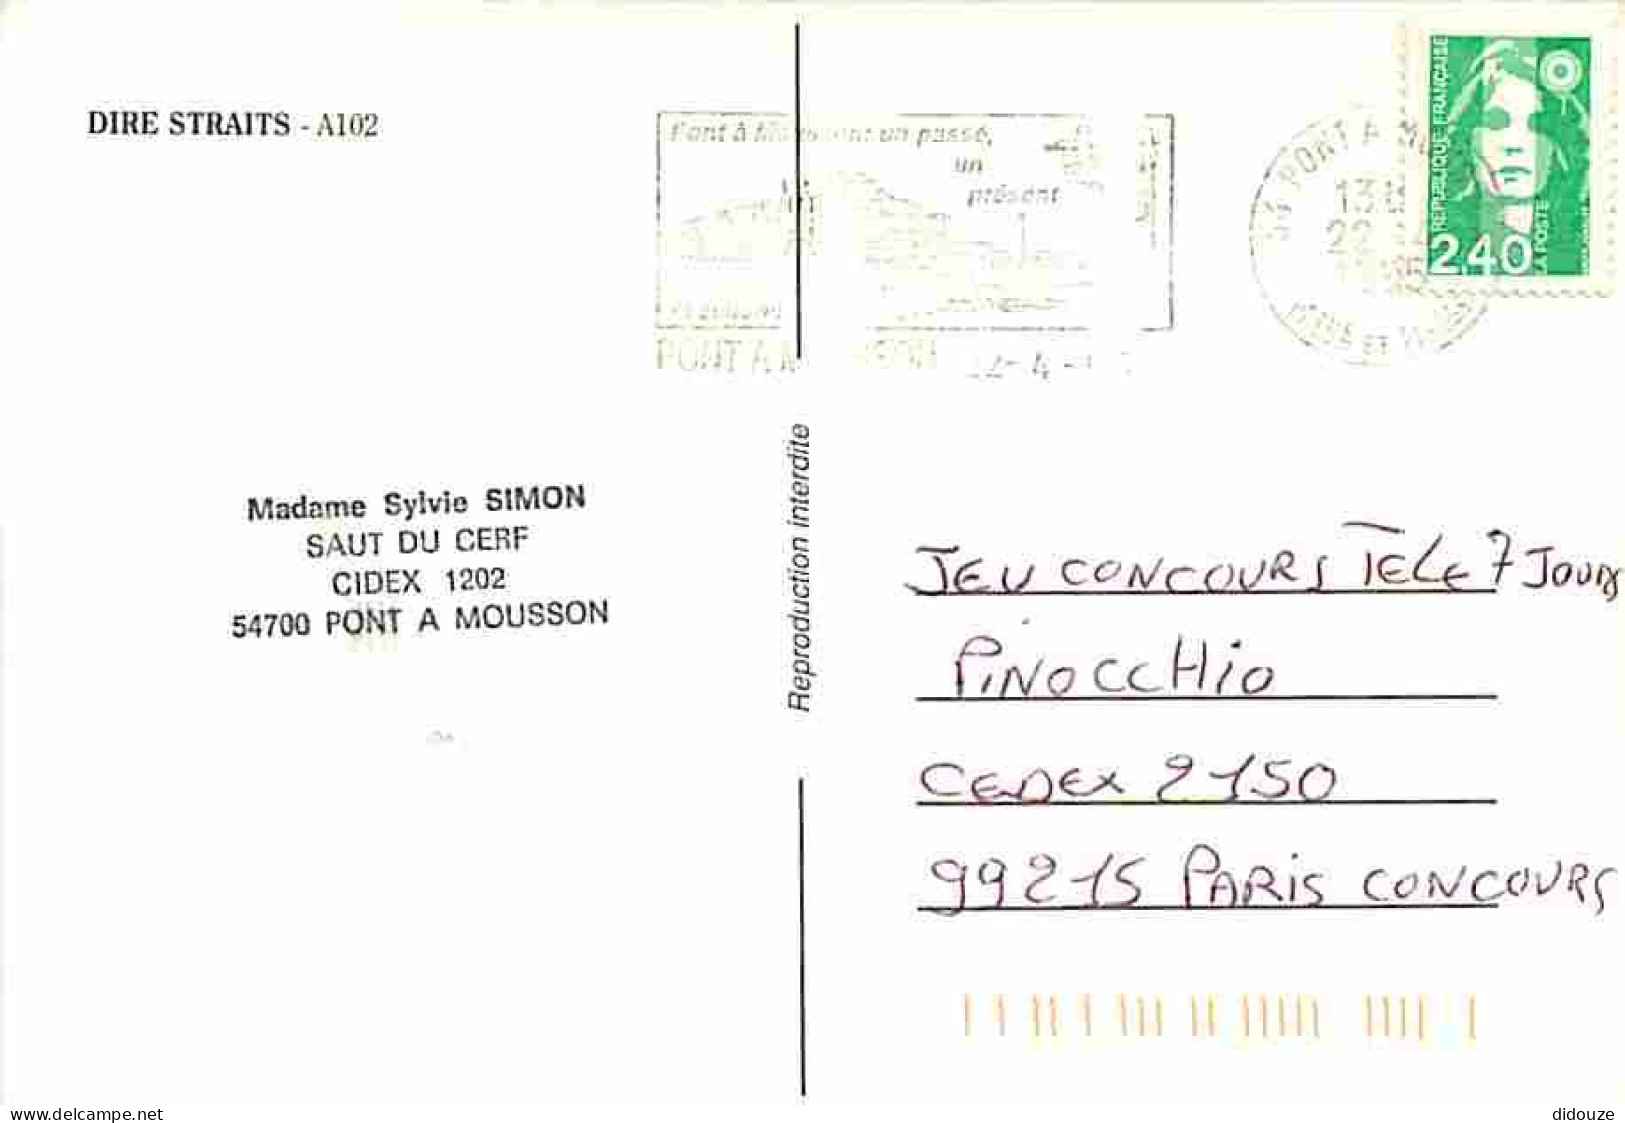 DIRE STRAITS - A102
un passé,
un
présent
PONT A
REPUBLIQUE FRANÇAISE
LA POSTE
2,40
Madame Sylvie SIMON
SAUT DU CERF
CIDEX 1202
54700 PONT A MOUSSON
Reproduction interdite
JEU CONCOURS TELE 7 JOURS
PINOCCHIO
CEDEX 2150
99215 PARIS CONCOURS
www.delcampe.net
didouze